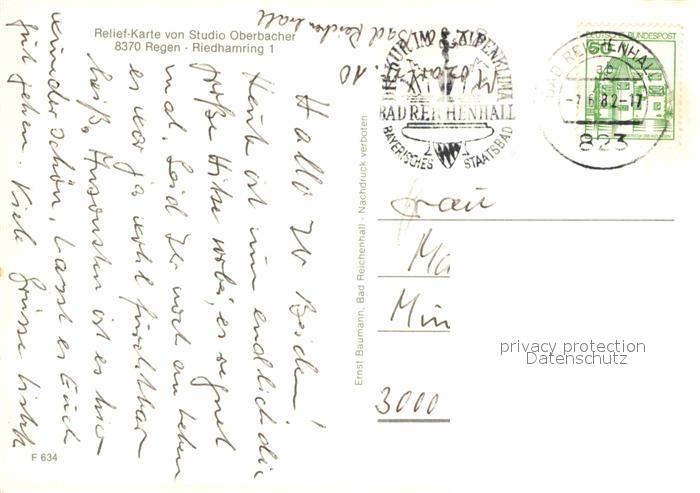 Relief-Karte von Studio Oberbacher
8370 Regen - Riedhamring 1
Bad Reichenhall
Hallo Ihr Beiden!
Heute ist nun endlich die
große Hitze vorbei, es regnet
mal. Seid Ihr noch am Leben
es war ja wohl furchtbar
heiß. Ansonsten ist es hier
wunderschön. Lasst es Euch
gut gehen. Viele Grüsse
F 634
Ernst Baumann, Bad Reichenhall - Nachdruck verboten
DIE KUR IM ALPENKLIMA
BAD REICHENHALL
BAYERISCHES STAATSBAD
DEUTSCHE BUNDESPOST
50
BAD REICHENHALL
-7.6.82-17
823
Frau
Ma
Min
3000
privacy protection
Datenschutz